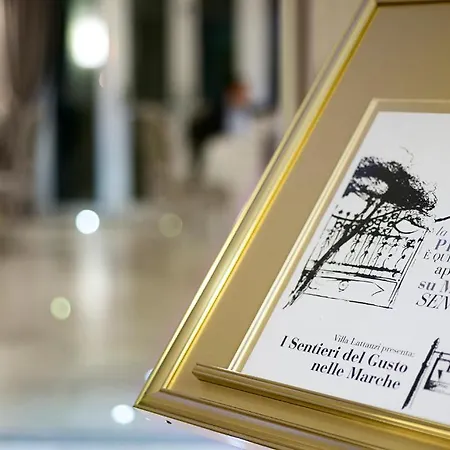 è la
È QU
su M
SEN
Villa Lattanzi presenta:
I Sentieri del Gusto
nelle Marche